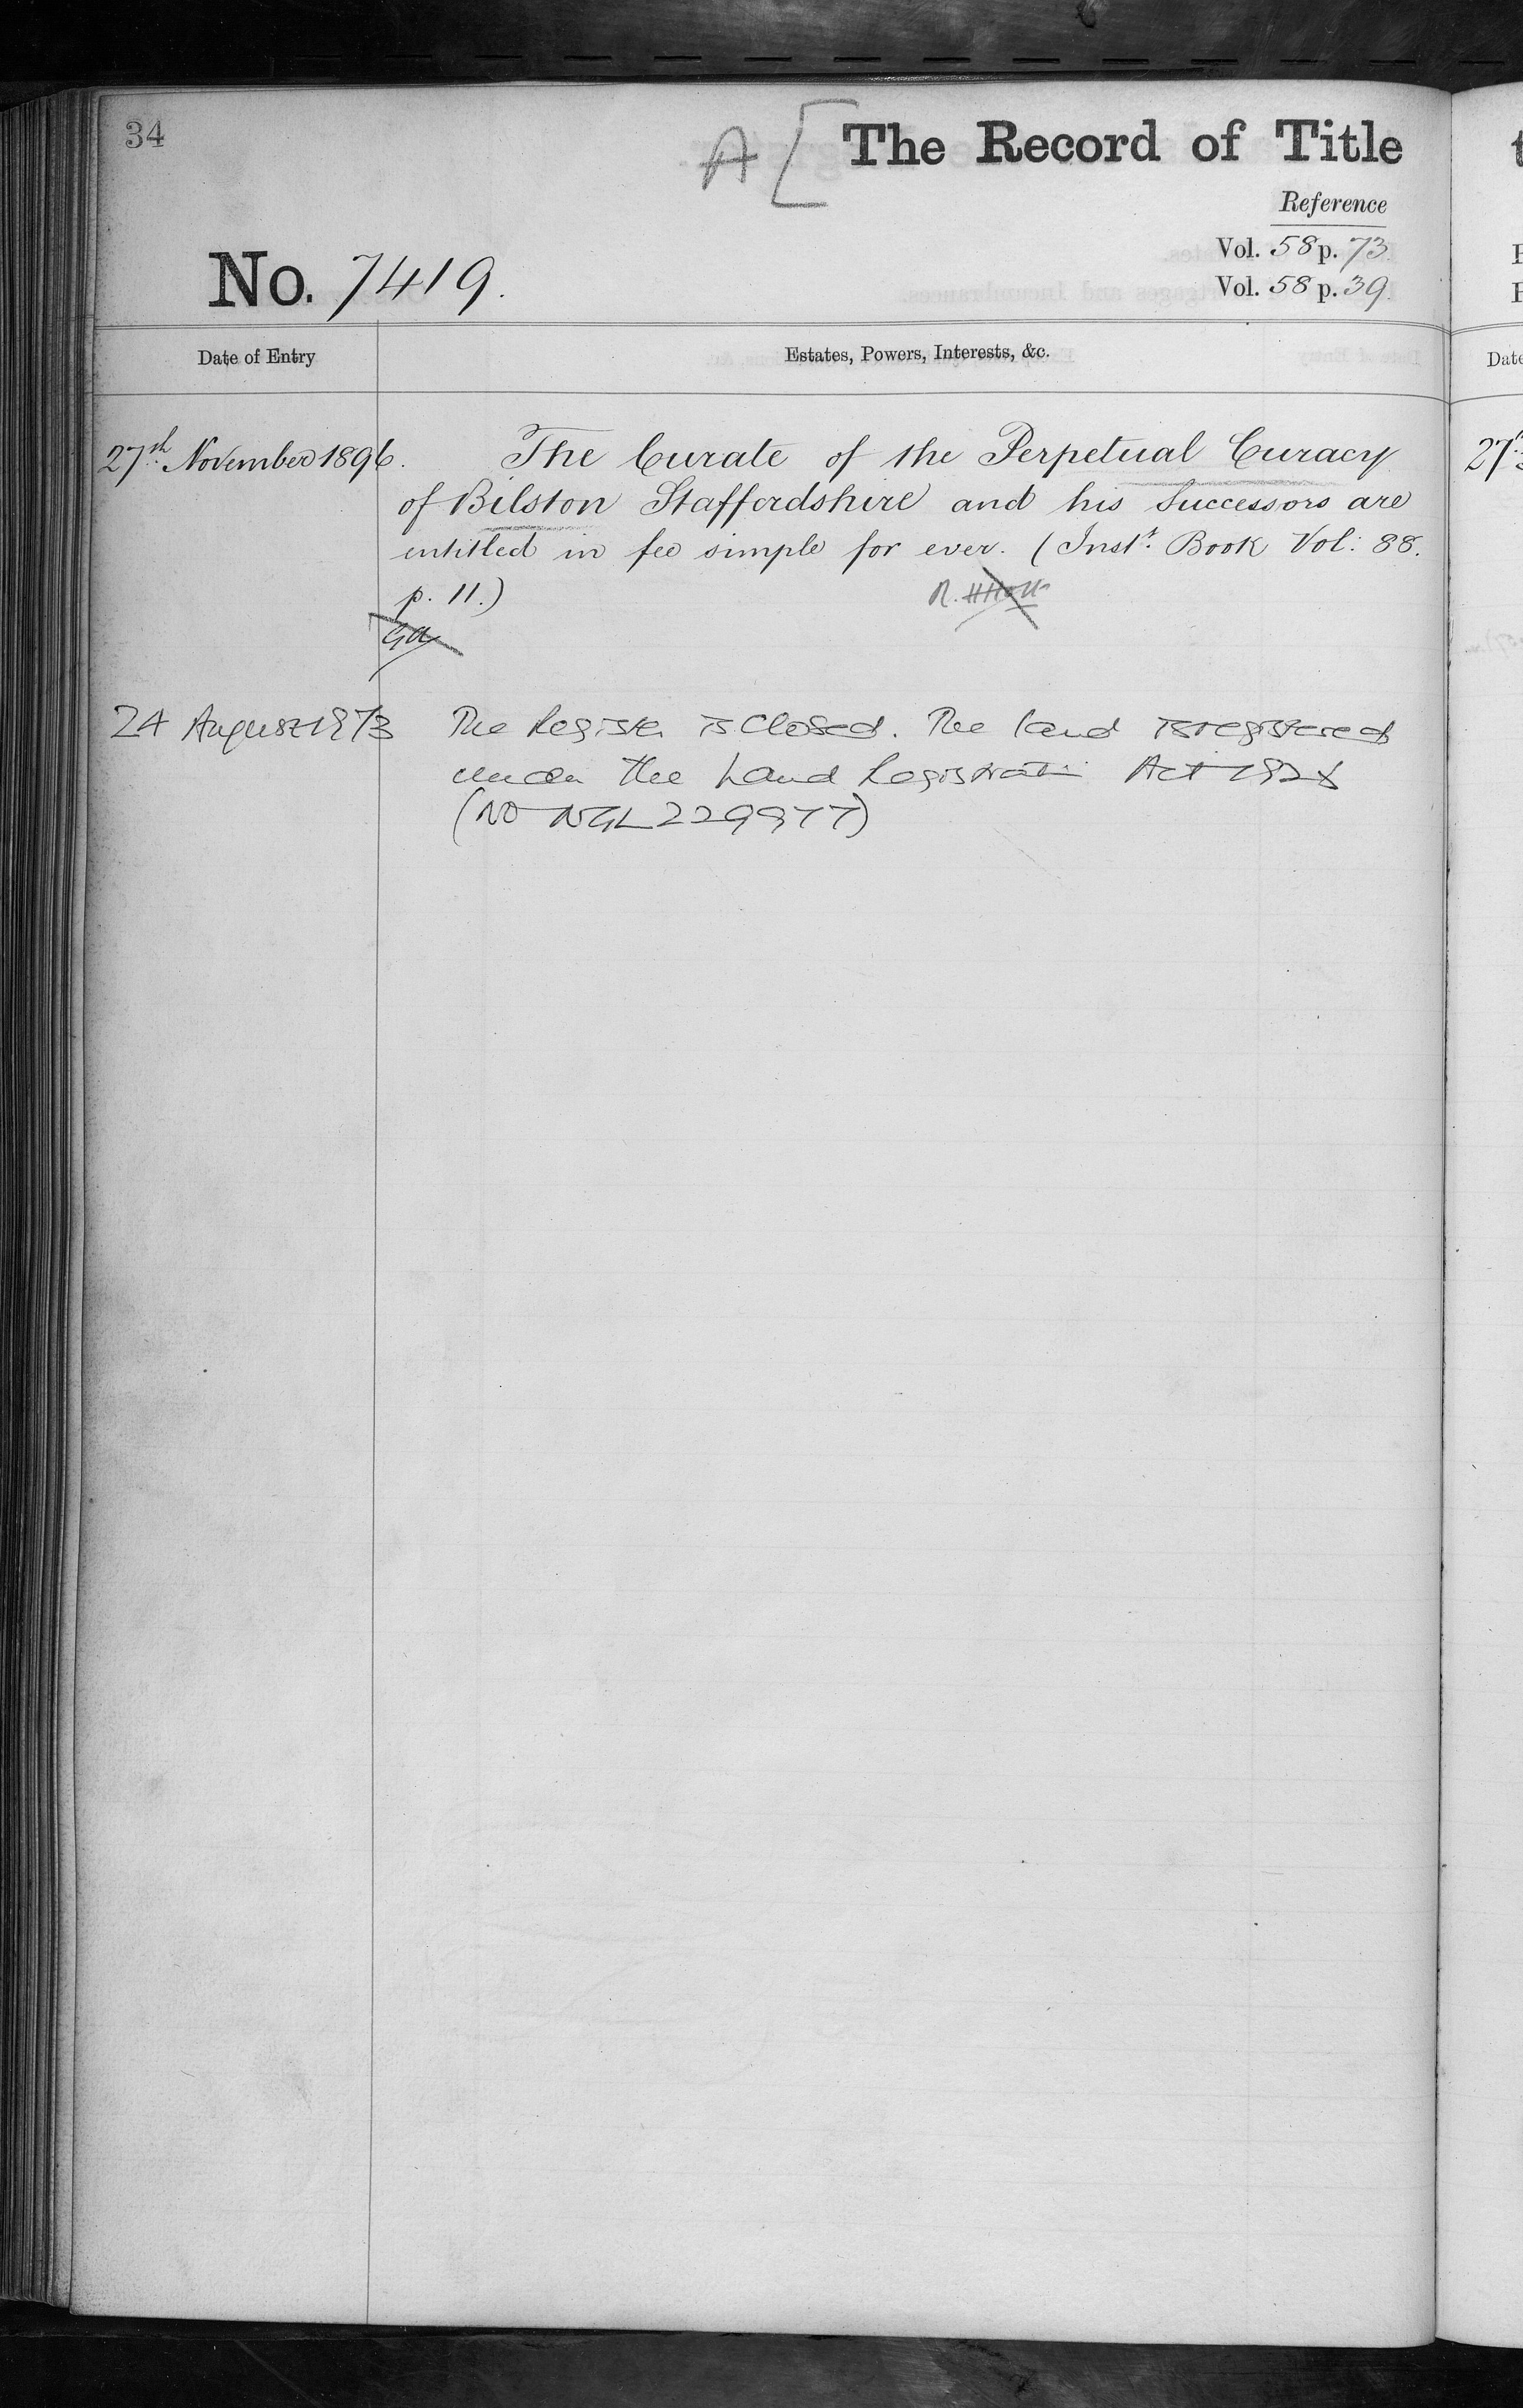 34
A [ The Record of Title
Reference
Vol. 58 p. 73.
No. 7419.
Vol. 58 p. 39.
Date of Entry
Estates, Powers, Interests, &c.
27th November 1896.
The Curate of the Perpetual Curacy
of Bilston Staffordshire and his Successors are
entitled in fee simple for ever. (Instt. Book Vol: 88.
p. 11.)
24 August 1973
The Register is Closed. The land is registered
under the Land Registration Act 1925
(No NGL 229977)
Date
27th